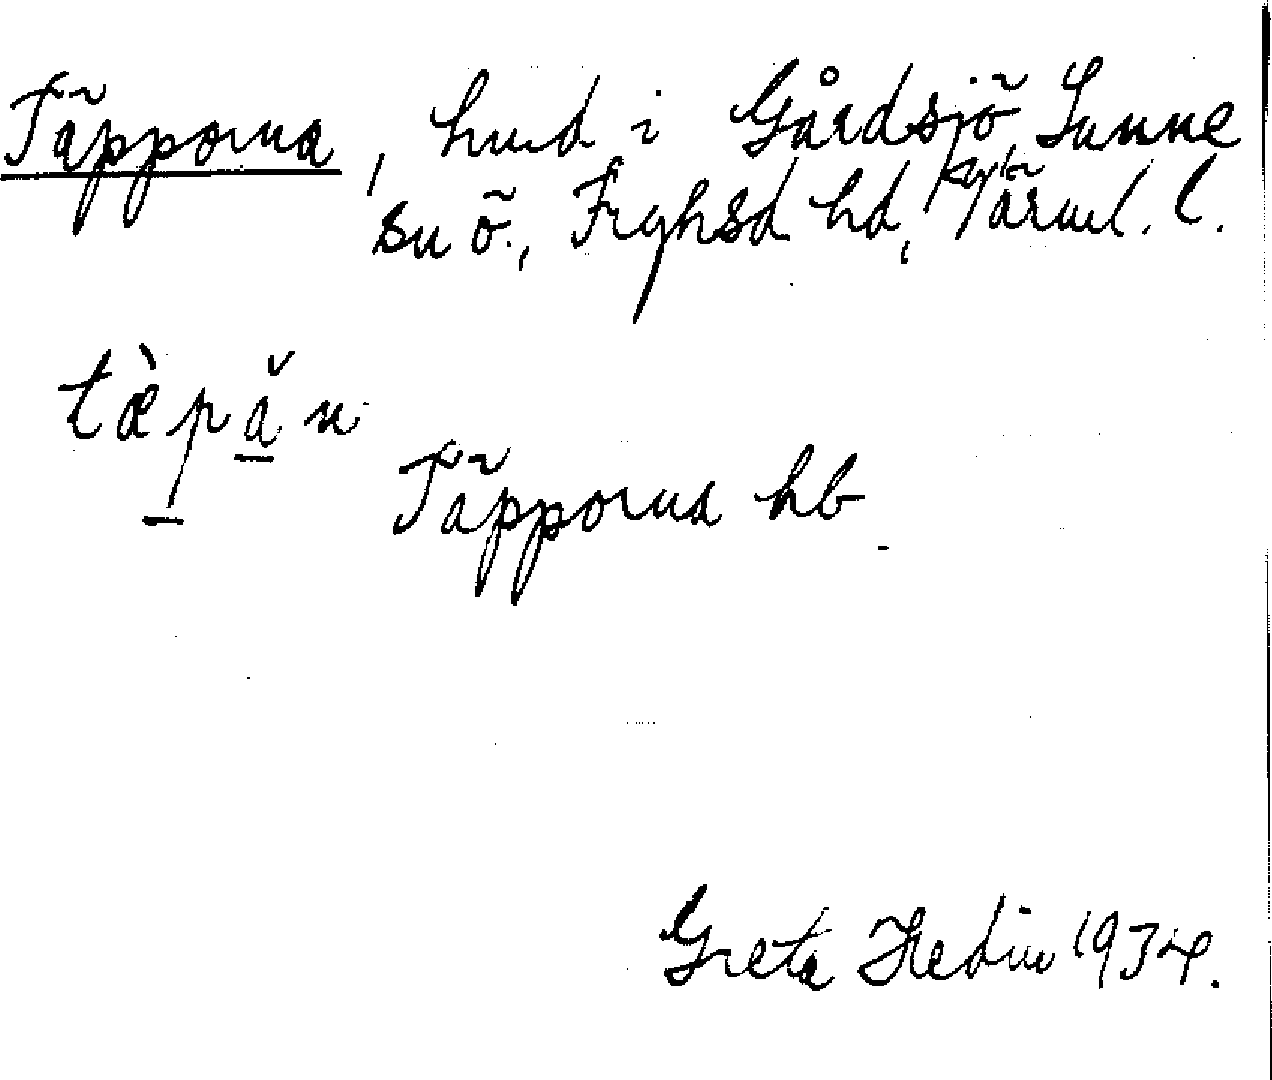 Täpporna, hmd i Gårdsjö, Sunne
sn ö., Fryksd hd, Värml. l.
tæ̀pǎn
Täpporna hb
Greta Hedin 1934.